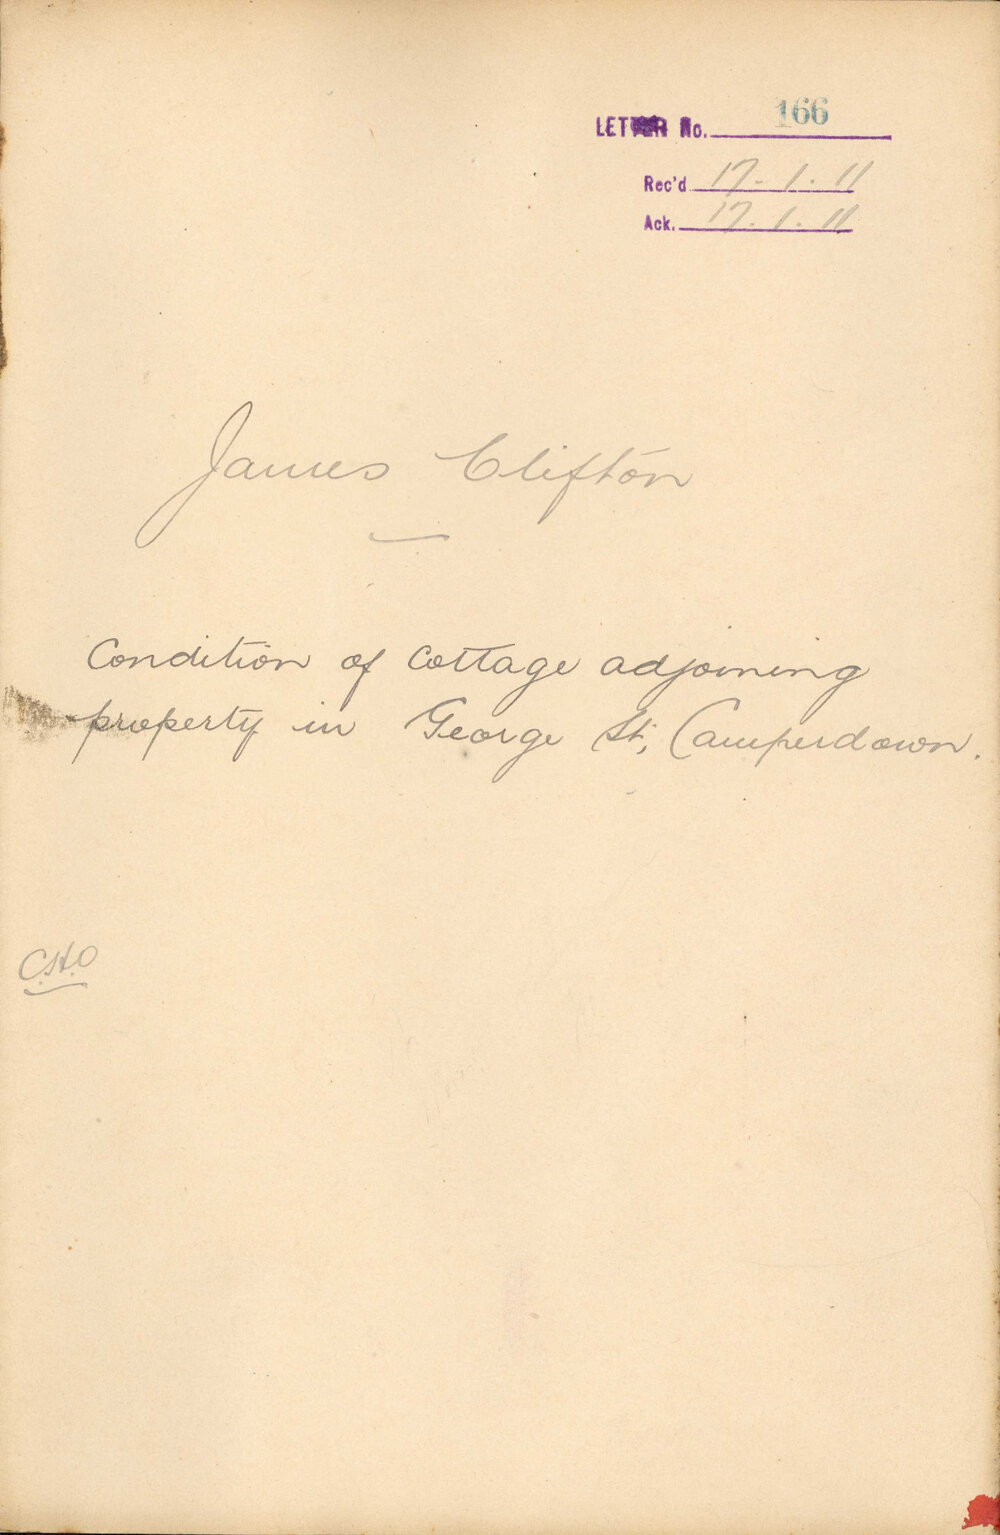 LETTER No. 166
Rec'd 17.1.11
Ack. 17.1.11
James Clifton
Condition of Cottage adjoining
property in George St, Camperdown.
C.H.O